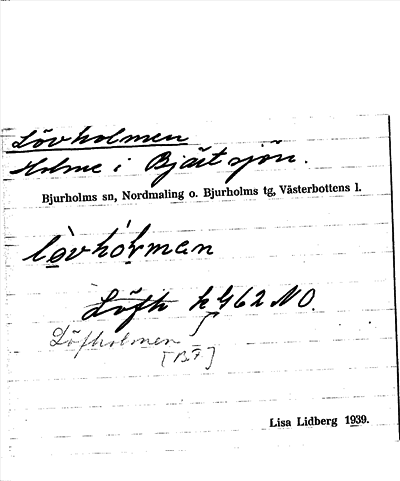 Lövholmen
Holme i Bjästsjön.
Bjurholms sn, Nordmaling o. Bjurholms tg, Västerbottens l.
lòvhòrman
Löfh k 462 NO.
Löfholmen
[BF]
Lisa Lidberg 1939.